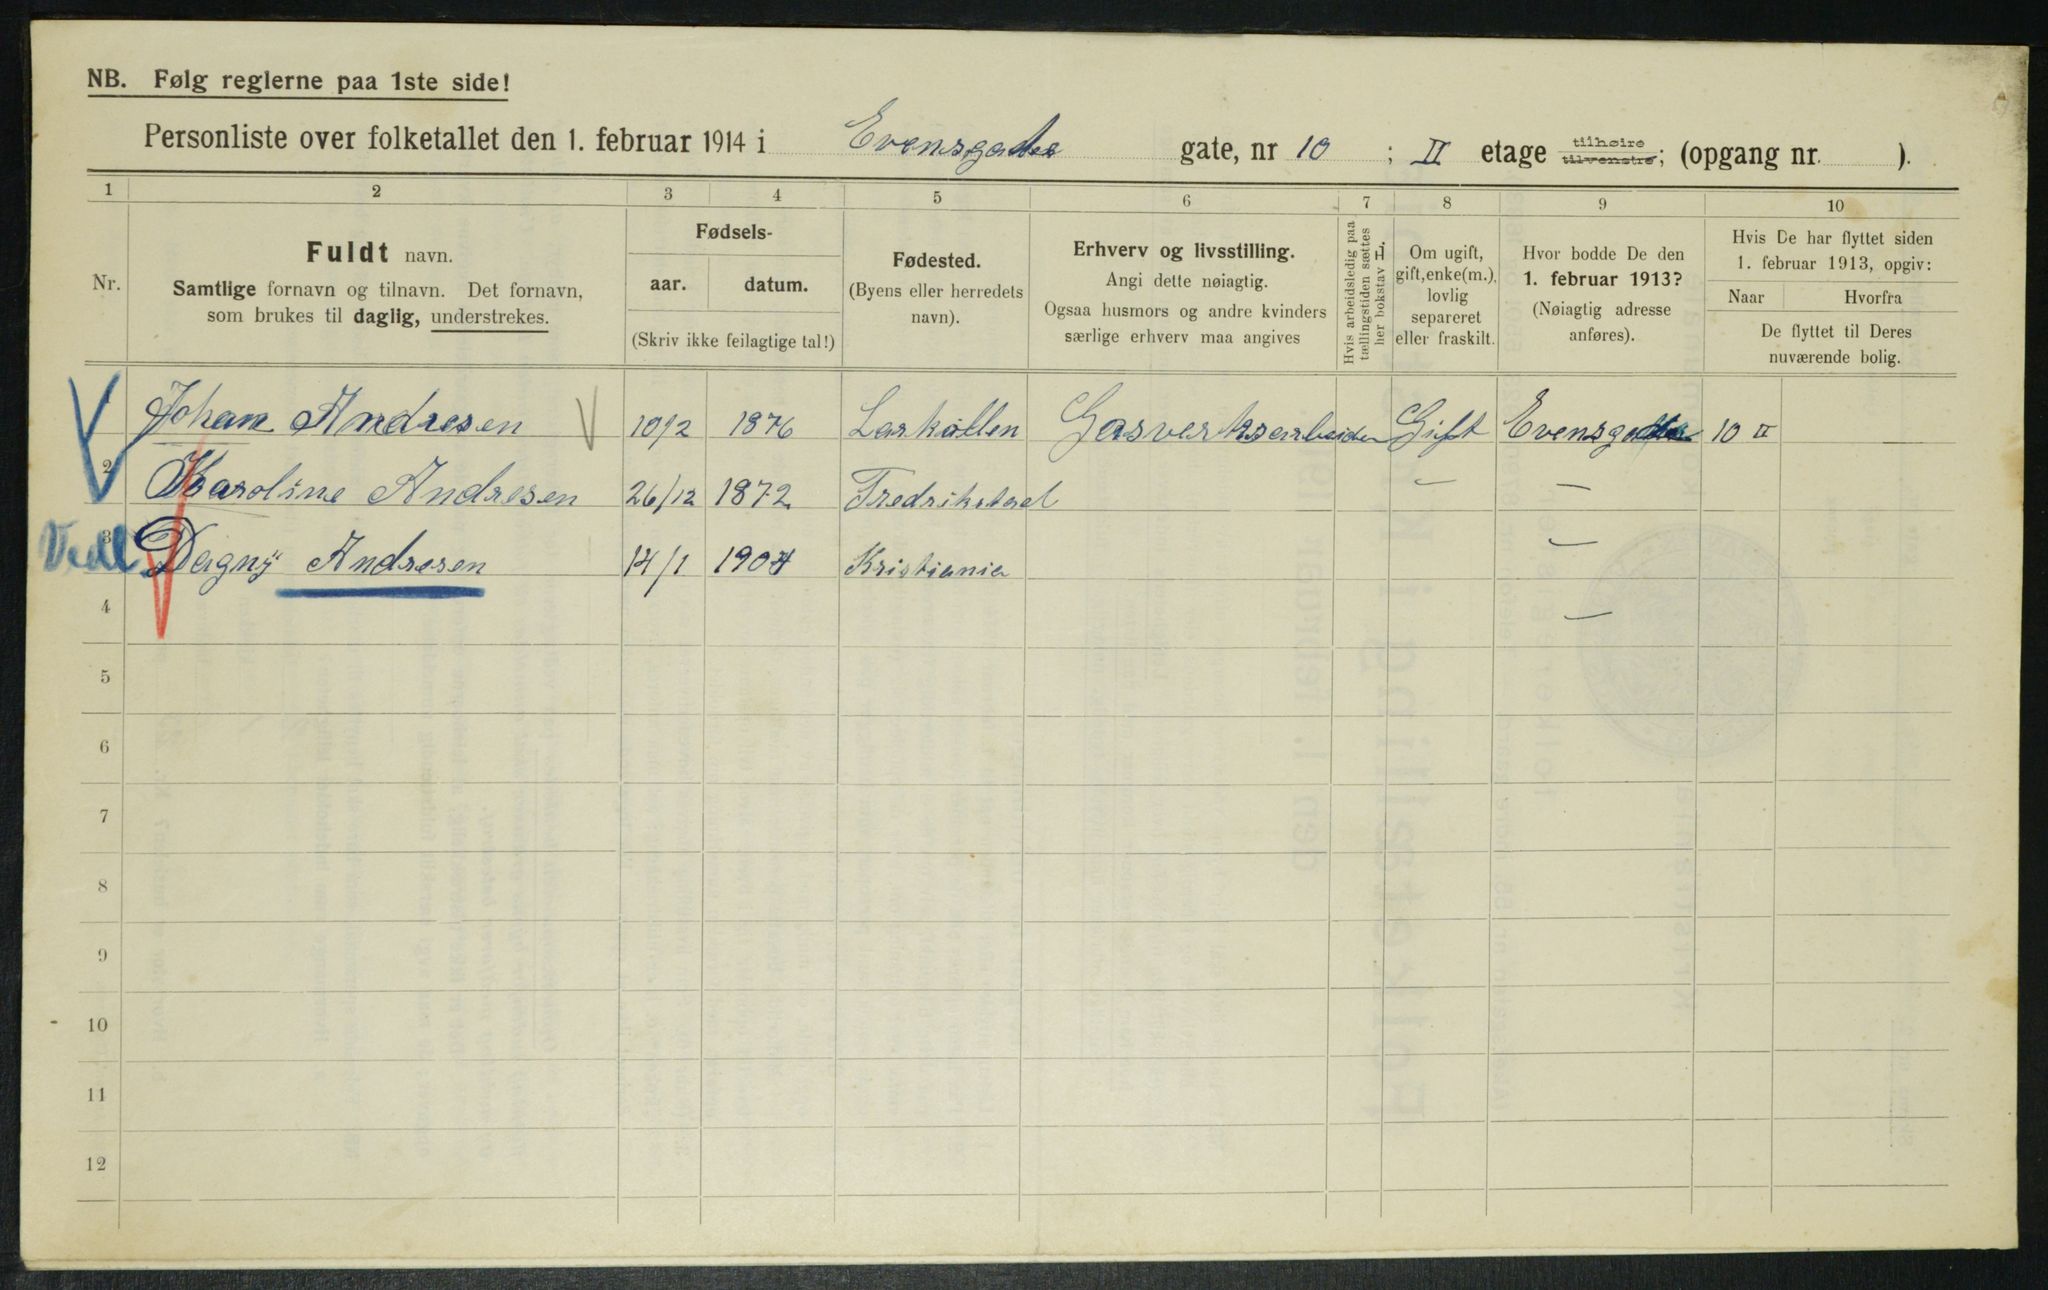 NB. Følg reglerne paa 1ste side!
Personliste over folketallet den 1. februar 1914 i Evensgaten gate, nr 10 ; II etage tilhøire tilvenstre; (opgang nr. ).
1 2 3 4 5 6 7 8 9 10
Nr.
Fuldt navn.
Samtlige fornavn og tilnavn. Det fornavn,
som brukes til daglig, understrekes.
Fødsels-
aar. datum.
(Skriv ikke feilagtige tal!)
Fødested.
(Byens eller herredets
navn).
Erhverv og livsstilling.
Angi dette nøiagtig.
Ogsaa husmors og andre kvinders
særlige erhverv maa angives
Hvis arbeidsledig paa
tællingstiden sættes
her bokstav L.
Om ugift,
gift, enke(m.),
lovlig
separeret
eller fraskilt.
Hvor bodde De den
1. februar 1913?
(Nøiagtig adresse
anføres).
Hvis De har flyttet siden
1. februar 1913, opgiv:
Naar Hvorfra
De flyttet til Deres
nuværende bolig.
1 Johan Andresen 10/2 1876 Larkollen Gasverksarbeider Gift Evensgaten 10 II
2 Karoline Andresen 26/12 1872 Fredrikstad — —
3 Dagny Andresen 14/1 1904 Kristiania —
4 —
5
6
7
8
9
10
11
12